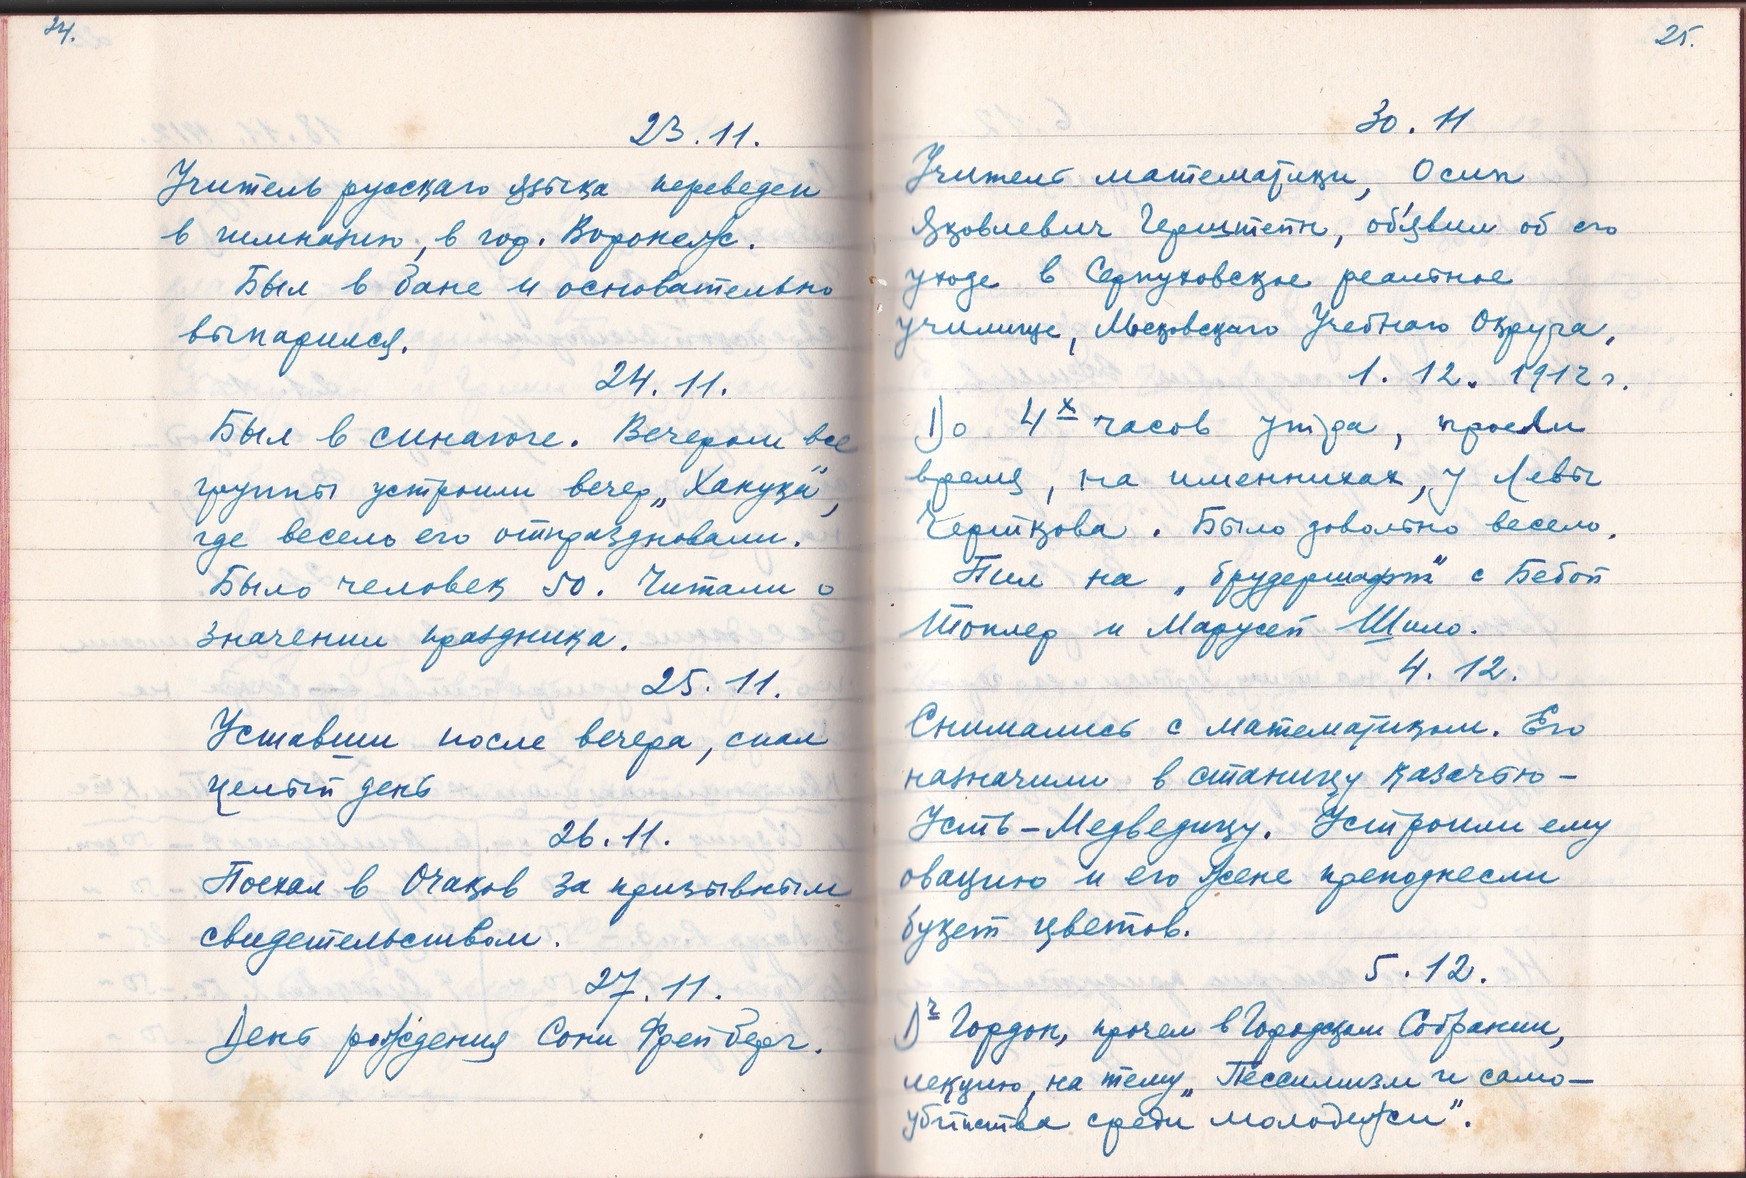 24.
23.11.
Учитель русскаго языка переведен
в гимназию, в гор. Воронеж.
Был в бане и основательно
выпарился.
24.11.
Был в синагоге. Вечером все
группы устроили вечер „Ханука",
где весело его отпраздновали.
Было человек 50. Читали о
значении праздника.
25.11.
Уставши после вечера, спал
целый день
26.11.
Поехал в Очаков за призывным
свидетельством.
27.11.
День рождения Сони Фрейберг.
25.
30.11
Учитель математики, Осип
Яковлевич Герштейн, об'явил об его
уходе в Серпуховское реальное
училище, Московскаго Учебнаго Округа.
1.12.1912 г.
До 4х часов утра, провели
время, на именинах, у Левы
Черткова. Было довольно весело.
Пил на „брудершафт" с Бебой
Топлер и Марусей Шило.
4.12.
Снимались с математиком. Его
назначили в станицу казачью -
Усть-Медведицу. Устроили ему
овацию и его жене преподнесли
букет цветов.
5.12.
Дч Гордон, прочел в Городском Собрании,
лекцию, на тему „Пессимизм и само-
убийства среди молодежи".